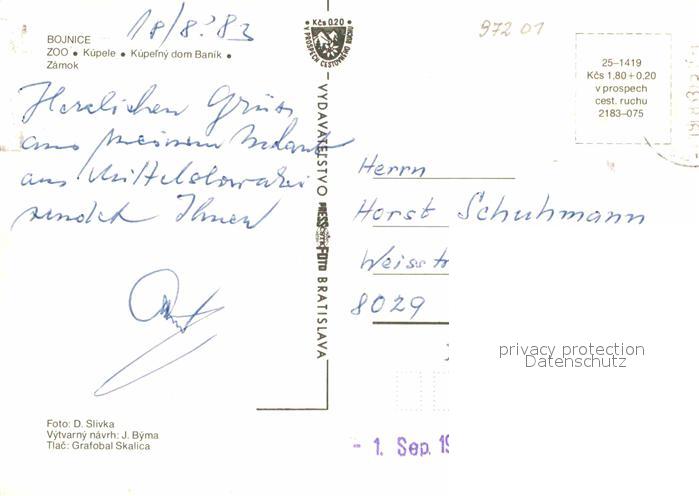 18/8. 83
BOJNICE
ZOO • Kúpele • Kúpeľný dom Baník •
Zámok
Herzlichen Grüss
aus meinem
aus Mittelslowakei
sendet Ihnen
Foto: D. Slivka
Výtvarný návrh: J. Býma
Tlač: Grafobal Skalica
Kčs 0.20
V PROSPECH CESTOVNÉHO RUCHU
VYDAVATEĽSTVO PRESSFOTO BRATISLAVA
972 01
25–1419
Kčs 1,80 + 0,20
v prospech
cest. ruchu
2183–075
Herrn
Horst Schuhmann
Weisstr
8029
privacy protection
Datenschutz
- 1. Sep. 19